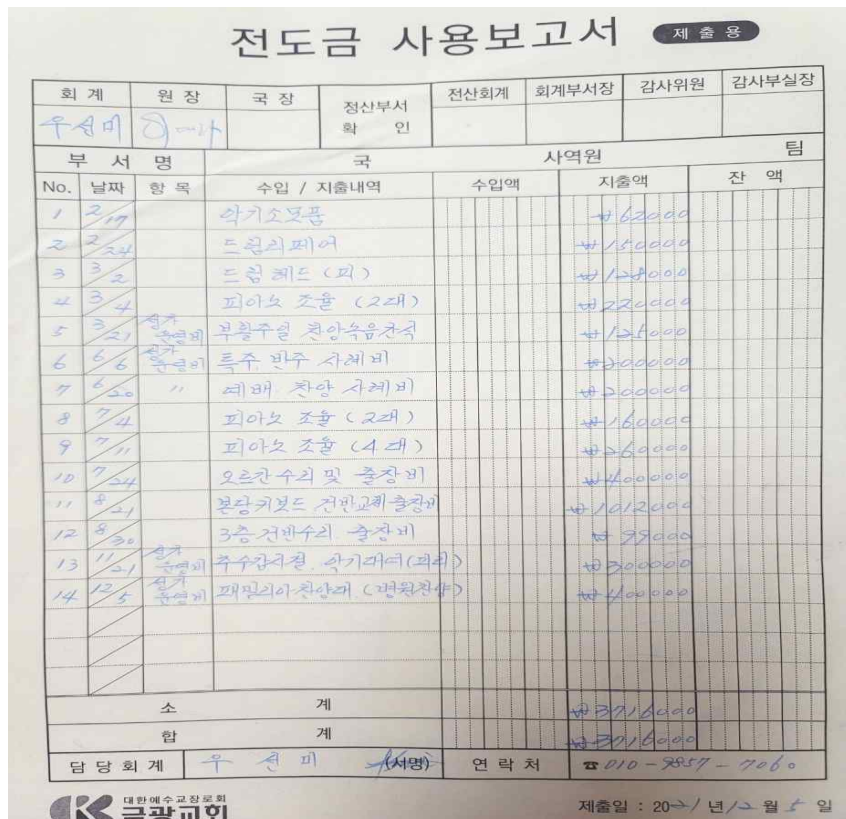 전도금 사용보고서 제출용
회계 원장 국장 정산부서 확인 전산회계 회계부서장 감사위원 감사부실장
우선미
부서명 국 사역원 팀
No. 날짜 항목 수입 / 지출내역 수입액 지출액 잔액
1 2/17 악기소모품 ₩62000
2 2/24 드럼리페어 ₩150000
3 3/2 드럼헤드 (피) ₩128000
4 3/4 피아노 조율 (2대) ₩220000
5 3/21 성가 운영비 부활주일 찬양녹음간식 ₩125000
6 6/6 성가 운영비 특주. 반주 사례비 ₩200000
7 6/20 〃 예배. 찬양 사례비 ₩200000
8 7/4 피아노 조율 (2대) ₩160000
9 7/11 피아노 조율 (4대) ₩260000
10 7/24 오르간수리 및 출장비 ₩400000
11 8/21 본당키보드 건반교체출장비 ₩1012000
12 8/30 3층 건반수리. 출장비 ₩99000
13 11/21 성가 운영비 추수감사절. 악기대여 ₩300000
14 12/5 성가 운영비 패밀리아찬양대 (병원찬양) ₩400000
소계 ₩3716000
합계 ₩3716000
담당회계 우선미 (서명) 연락처 ☎010-9857-7060
대한예수교장로회
금광교회
제출일 : 2021년 12월 5일